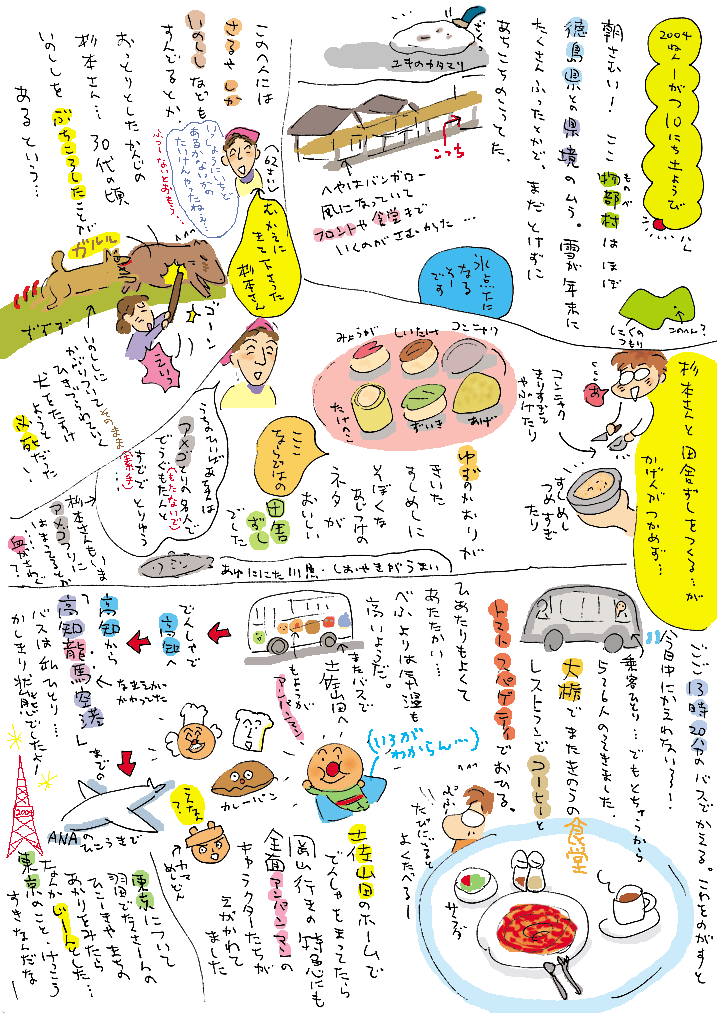 2004
ねんいちがつ10にち土ようび
朝さむい！ ここ物部村はほぼ
ものべ
徳島県との県境のムラ。雪が年末に
たくさんふったとかで、まだとけずに
あちこちのこってた。
ユキのカタマリ
こっち
へやはバンガロー
風になっていて
フロントや食堂まで
いくのがさむかった…
氷点下に
なる
そー
です
しこくの
つもり
このへん？
このへんには
さるやしか
いのししなども
すんでるとか。
おっとりとしたかんじの
杉本さん… 30代の頃
いのししをぶちころしたことが
あるという…
いっしょうにいちど
あるかないかの
たいけんやったねぇ…
ふつーないとおもう
(62さい)
むかえに
きて下さった
杉本さん
ガルル
ゴーン
えいっ
ずずず
いのししについて
かかりひきづられていく
そのまま
犬をたすけ
ようと
必死だった…
杉本さんと田舎ずしをつくる…が
かげんがつかめず…
あ
コンニャク
きりすぎて
やぶけたり
すしめし
つめすぎ
たり
みょうが
しいたけ
コンニャク
たけのこ
ずいき
あげ
ゆずのかおりが
きいた
すしめしに
そぼくな
あじつけの
ネタが
おいしい
田舎
ずし
でした
ここ
ならではの
うちのひいじいさまは
アメゴとりの名人で
どうぐもたんと
(もたないで)
すでで とりゆう
(素手)
杉本さんもいま
アメゴつりに
はまってるそうだ
血がさわぐ
？…
フミン
あゆににた川魚・しおやきがうまい
ごご13時20分のバスでかえる。これをのがすと
今日中にかえれない〜！
乗客ひとり… でもとちゅうから
5〜6人のってきました。
大栃でまたきのうの食堂
レストランでコーヒーと
トマトスパゲティでおひる。
たびにでると
よくたべるー
サラダ
ひあたりもよくて
あたたかい…
べふよりは気温も
高いようだ。
またバスで
土佐山田へ
アンパンマン
もようが
でんしゃで
高知へ
高知から
「高知龍馬空港」
までの
なまえかい
かわってた
バスは私ひとり。
かしきり状態でしたよ！
カレーパン
(いろが
わからん…)
えがお？
カマ
めしどん
土佐山田のホームで
でんしゃをまってたら
岡山行きの特急にも
全面アンパンマンの
キャラクターたちが
えがかれて
ました
ANA
のひこうきで
2004
東京について
羽田でたくさーんの
ひこーきやまちの
あかりをみたら
なんか じーんとした…
東京のこと、けっこう
すきなんだな